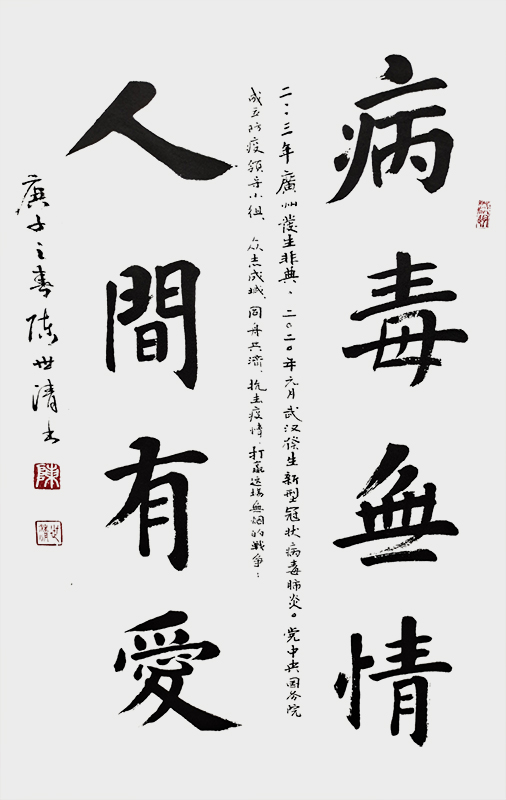 病毒無情
二〇〇三年廣州發生非典、二〇二〇年元月武汉發生新型冠狀病毒肺炎。党中央國务院
成立防疫领导小组、众志成城、同舟共濟、抗击疫情、打赢这場無烟的戰争：
人間有愛
庚子之春陈世清书
陳